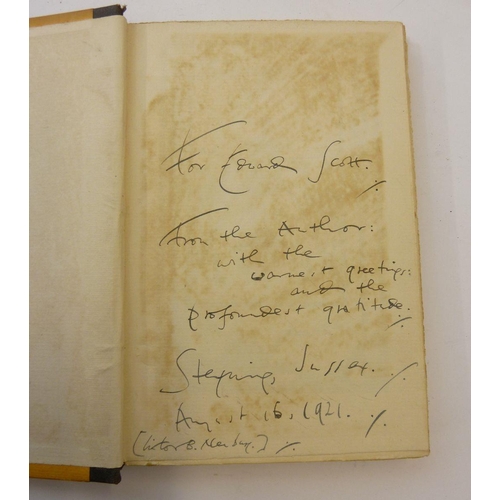 For Edward Scott. ⁒
From the Author:
with the
warmest greetings:
and the
profoundest gratitude. ⁒
Steyning, Sussex. ⁒
August 16, 1921. ⁒
[Victor B. Neuburg.] ⁒